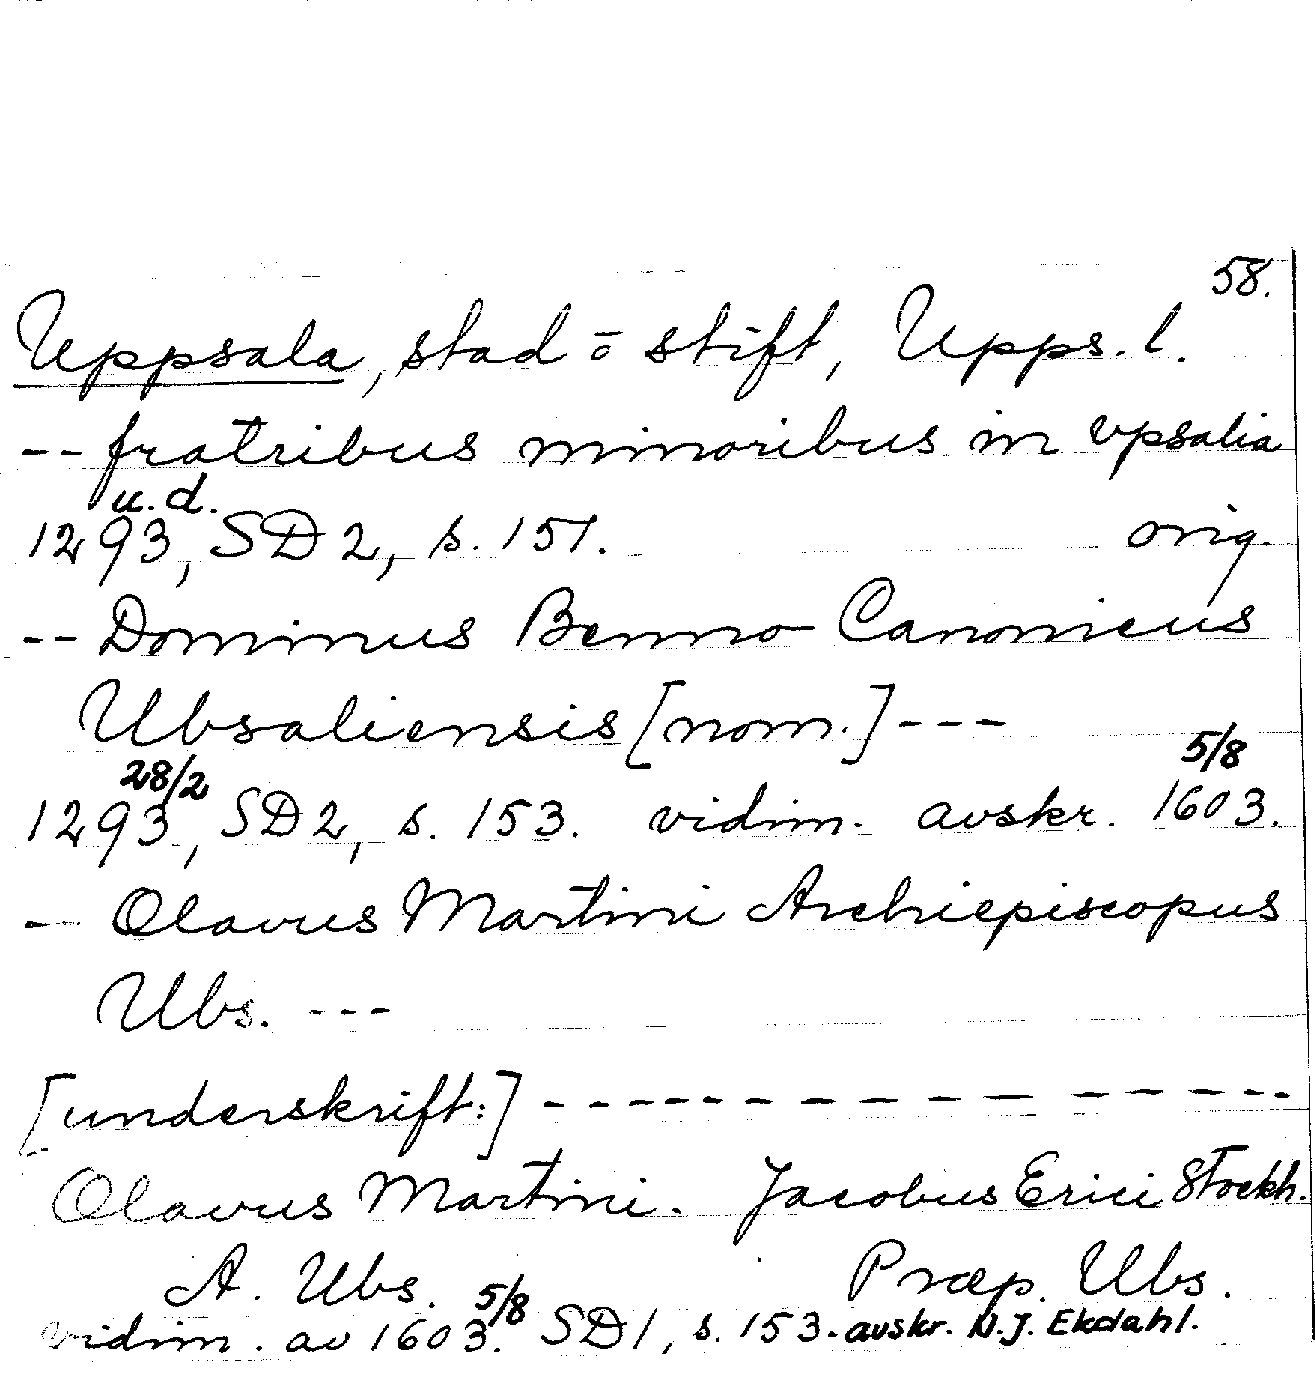 58.
Uppsala, stad ō stift, Upps. l.
-- fratribus minoribus in vpsalia
u.d.
1293, SD 2, s. 151. orig.
-- Dominus Benno Canonicus
Ubsaliensis [nom.] ---
28/2 5/8
1293, SD 2, s. 153. vidim. avskr. 1603.
-- Olavus Martini Archiepiscopus
Ubs. ---
[underskrift:] ---------------
Olavus Martini. Jacobus Erici Stockh.
A. Ubs. Præp. Ubs.
5/8
vidim. av 1603. SD 1, s. 153. avskr. N.J. Ekdahl.